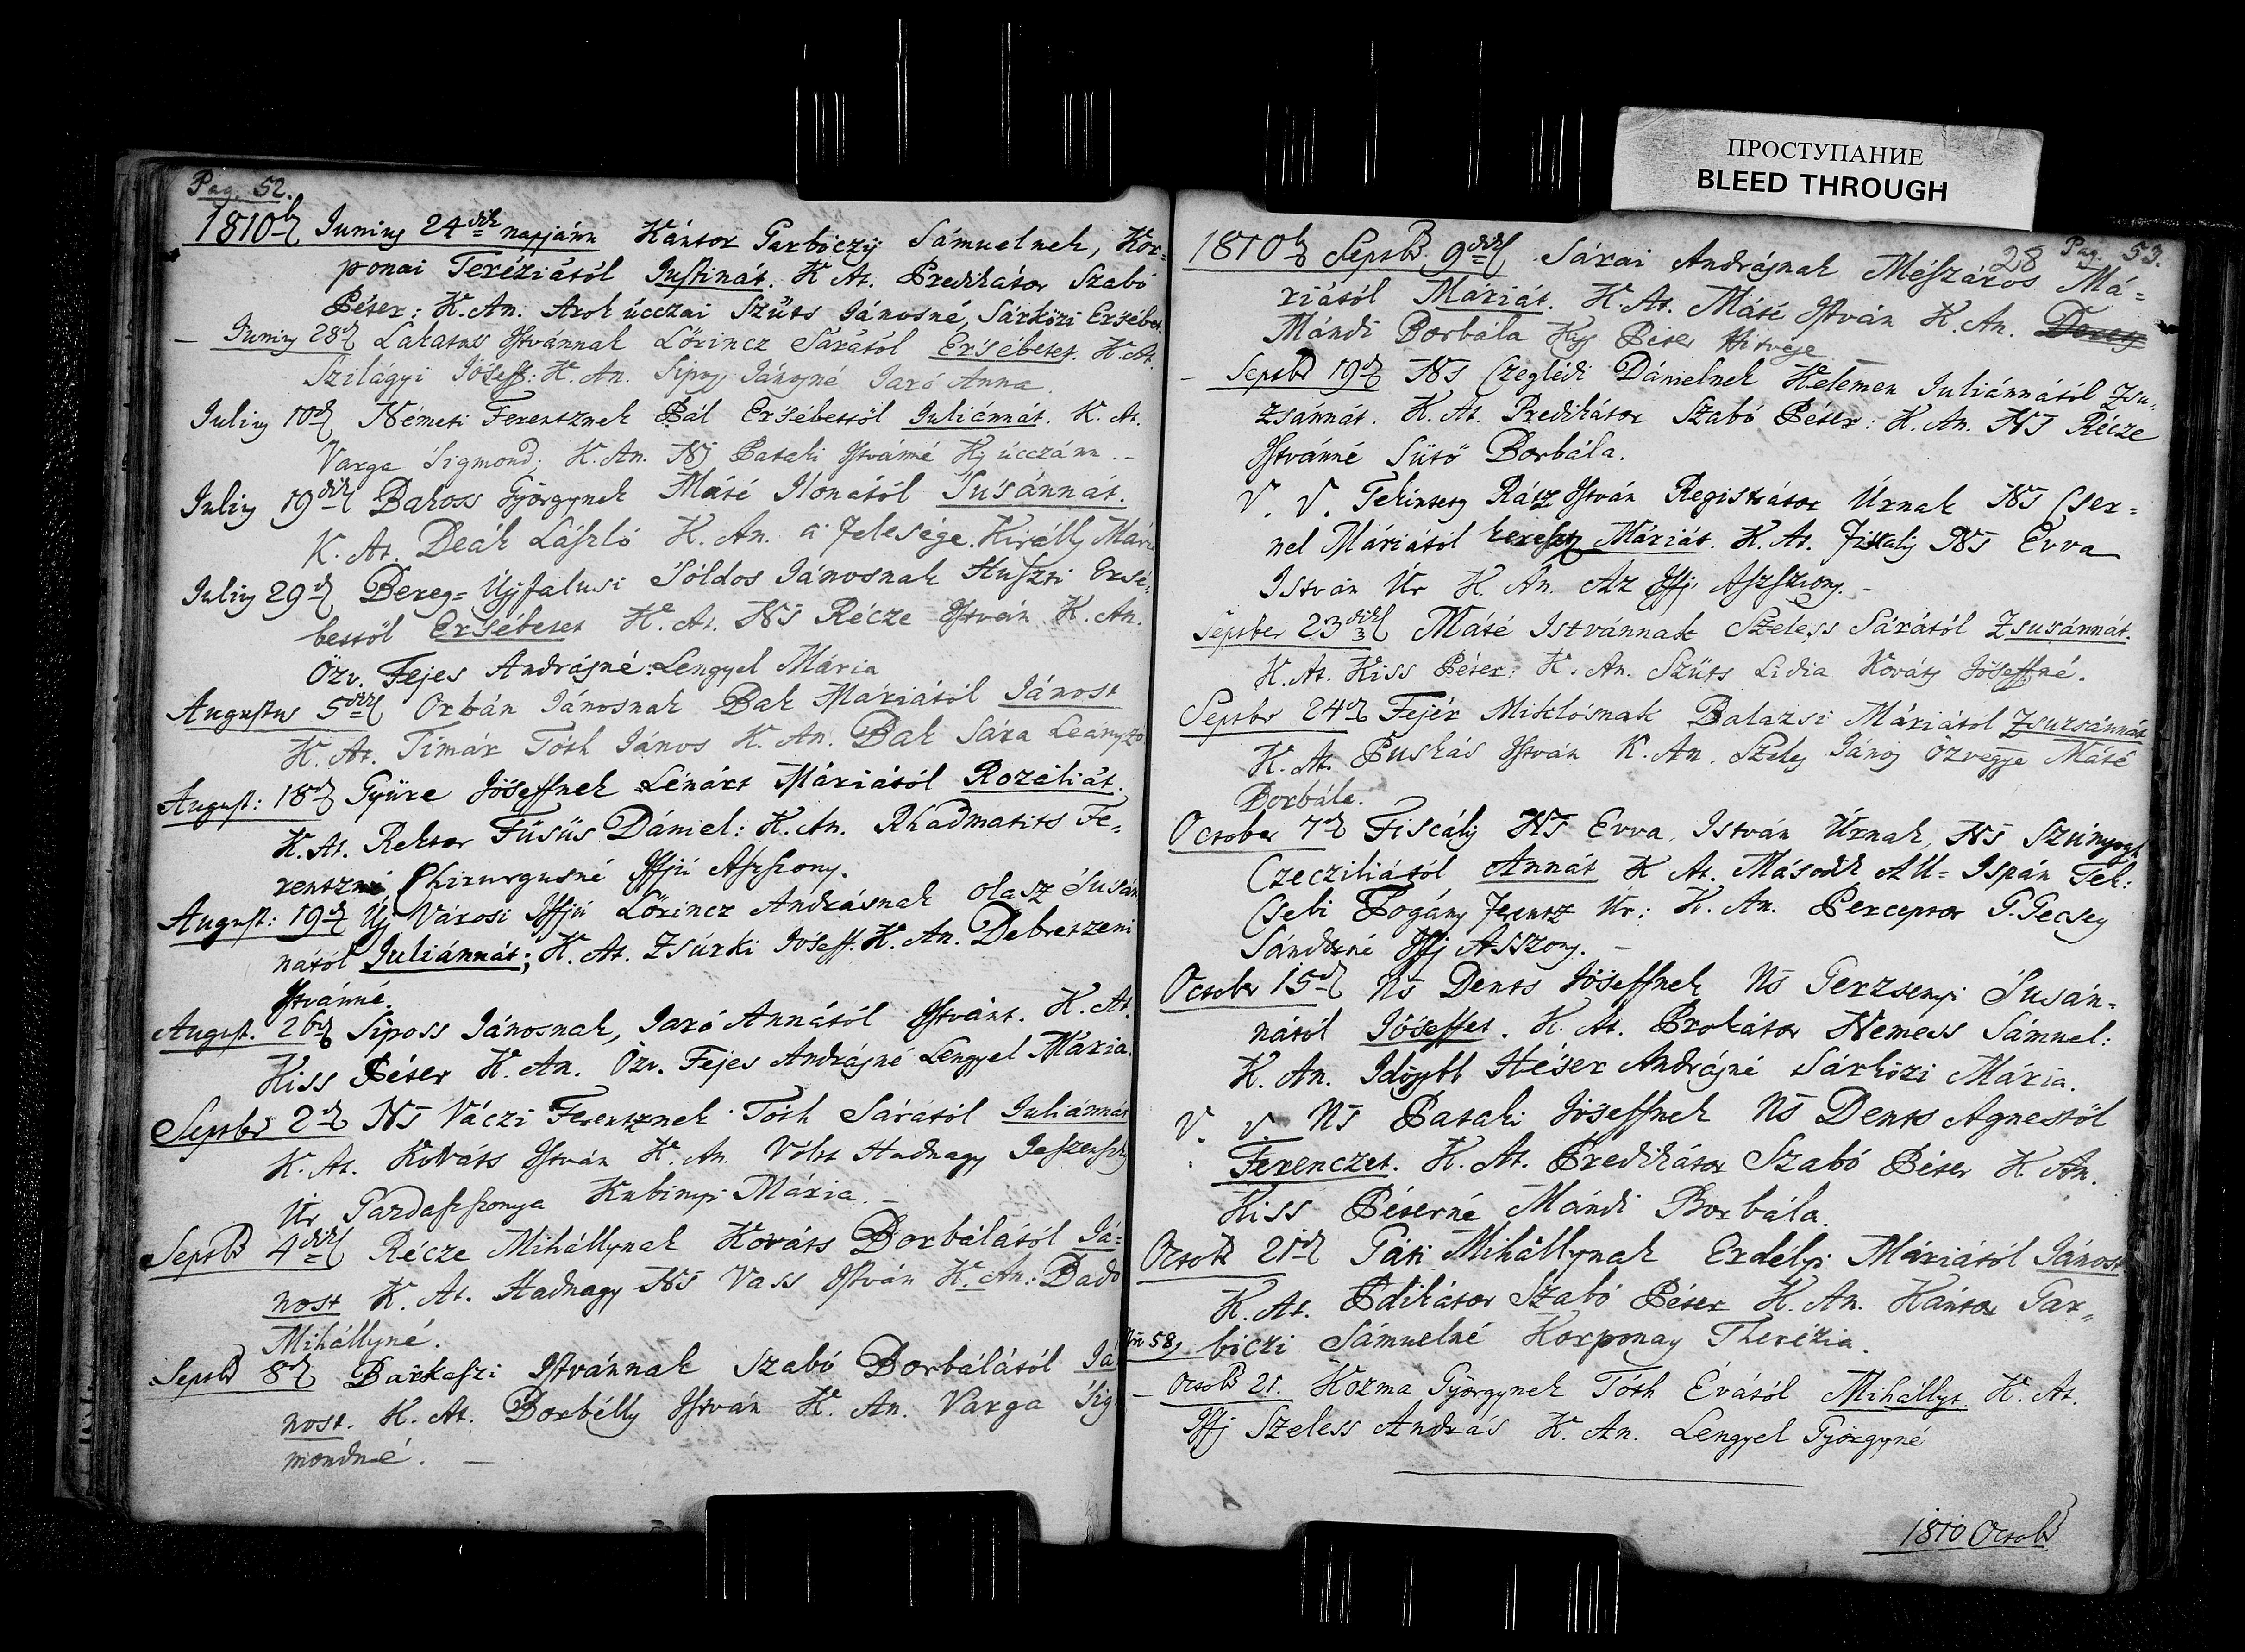 ПРОСТУПАНИЕ
BLEED THROUGH
Pag. 52.
1810b Junius 24dik napjánn Kántor Garbóczÿ Sámuelnek, Kor-
ponai Teréziától Justinát. K. At. Predikátor Szabó
Péter: K. An. Arok úcczai Szűts Jánosné, Sárközi Ersébet.
– Junius 28d Lakatos Istvánnak Lőrincz Sárától Ersébetet. K. At.
Szilágyi Jóseff: K. An. Sipos Jánosné Jaró Anna.
Julius 10d Németi Ferentznek Pál Ersébettől Juliánnát. K. At.
Varga Sigmond; K. An. NS Pataki Istvánné Kis úcczánn. –
Julius 19dik Bakoss Györgynek Máté Ilonától Susánnát.
K. At. Deák László K. An. a' felesége Királly Mária
Julius 29d Bereg=Újfalusi Sóldos Jánosnak Huszti Ersé-
bettől Ersébetet K. At. NS Récze István K. An.
Özv. Fejes Andrásné: Lengyel Mária
Augustus 5dik Orbán Jánosnak Bak Máriától Jánost
K. At. Tímár Tóth János K. An. Bak Sára Leányzó
August: 18d Gyüre Jóseffnek Lénárt Máriától Rozáliát.
K. At. Rektor Füsüs Dániel: K. An. Rhadmatits Fe-
rentzné Chirurgusné Iffjú Aszszony.
August: 19d Új Városi Iffjú Lőrincz Andrásnak Olasz Susán
nától Juliánnát; K. At. Zsúrki Jóseff. K. An. Debretzeni
Istvánné.
August. 26d Siposs Jánosnak, Jaró Annától Istvánt. K. At.
Kiss Péter K. An. Özv. Fejes Andrásné Lengyel Mária.
Septbr 2d NS Váczi Ferentznek Tóth Sárától Juliánnát
K. At. Kováts István K. An. Vólt Hadnagy Jeszenszky
Úr Gazdaszszonya Kubinyi Mária. –
Septb 4dik Récze Mihállynak Kováts Borbálától Já-
nost K. At. Hadnagy NS Vass István K. An.: Badó
Mihállyné.
Septb 8d Barkaszi Istvánnak Szabó Borbálától Já
nost. K. At. Borbélly István K. An. Varga Sig
mondné. –
28 Pag. 53.
1810b Septb. 9dik Sárai Andrásnak Mészáros Má-
riától Máriát. K. At. Máté István K. An.
Mándi Borbála Kiss Péter Hitvese
– Septb 19d NS Czeglédi Dánielnek Kelemen Juliánnától Zsu-
zsánnát. K. At. Predikátor Szabó Péter: K. An. NS Récze
Istvánné Sütő Borbála.
V. V. Tekintetes Rátz István Registrátor Úrnak NS Cser-
nel Máriától Máriát. K. At. Fiskalis NS Evva
István Úr K. An. Az Iffj. Aszszony. –
Septber 23dik Máté Istvánnak Szeless Sárától Zsusánnát.
K. At. Kiss Péter: K. An. Szűts Lidia Kováts Jóseffné.
Septbr 24d Fejér Miklósnak Balazsi Máriától Zsuzsánnát
K. At. Puskás István K. An. Szeles János Özvegye Máté
Borbála.
October 7d Fiscális NS Evva István Úrnak, NS Szúnyogh
Czecziliától Annát K. At. Második All=Ispán Tek:
Csebi Pogány Ferentz Úr: K. An. Perceptor G. Gecsey
Sándorné Iffj Asszony. –
October 15d NS Dents Jóseffnek NS Gerzsenyi Susán-
nától Jóseffet. K. At. Prokátor Nemess Sámuel:
K. An. Idősebb Héser Andrásné Sárközi Mária.
V. V. NS Pataki Jóseffnek NS Dents Agnestől
Ferenczet. K. At. Predikátor Szabó Péter K. An.
Kiss Péterné Mándi Borbála.
Octob 21d Gáti Mihállynak Erdélyi Máriától Jánost
K. At. Pdikátor Szabó Péter K. An. Kántor Gar-
bóczi Sámuelné Korponay Therézia.
– Octob 21. Kozma Györgynek Tóth Évától Mihállyt. K. At.
Iffj Szeless András K. An. Lengyel Györgyné
1810 Octob